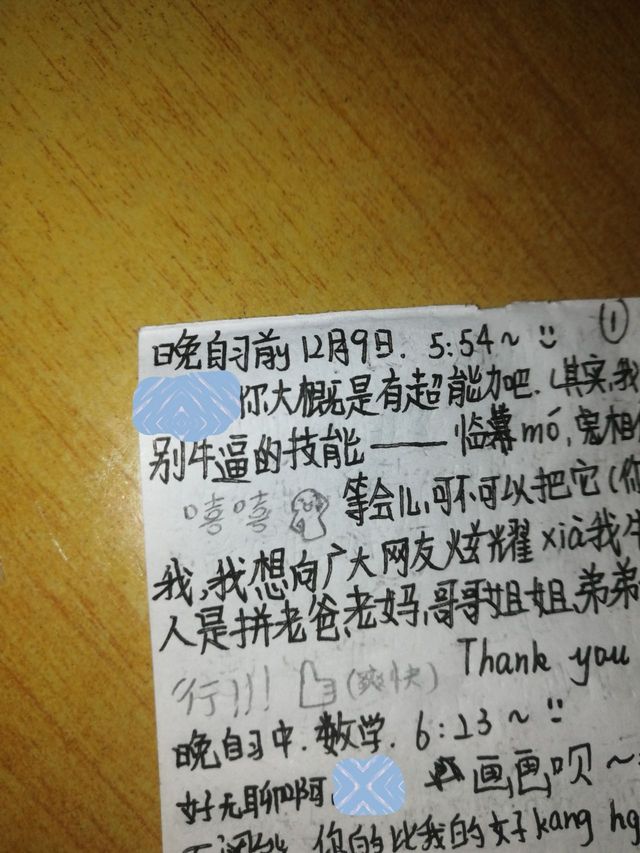 ①
晚自习前 12月9日. 5:54~
你大概是有超能力吧.(其实,我
别牛逼的技能——临摹mó,鬼相
嘻嘻
等会儿,可不可以把它(你
我,我想向广大网友炫耀xià我牛
人是拼老爸,老妈,哥哥姐姐,弟弟
Thank you
行!!! (爽快)
晚自习中.数学. 6:23~
好无聊啊, 画画呗~
你的比我的好kang